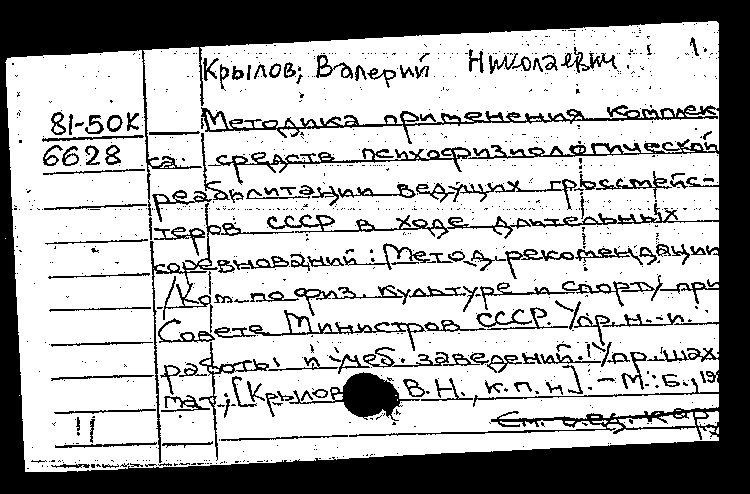 Крылов, Валерий Николаевич. 1.
81-50К Методика применения комплек
6628 са средств психофизиологической
реабилитации ведущих гроссмейс-
теров СССР в ходе длительных
соревнований: Метод. рекомендации
/Ком. по физ. культуре и спорту при
Совете Министров СССР. Упр. н.-и.
работы и учеб. заведений. Упр. шах-
мат; [Крылов В.Н., к.п.н]. - М.: Б.,
11 См. след. кар